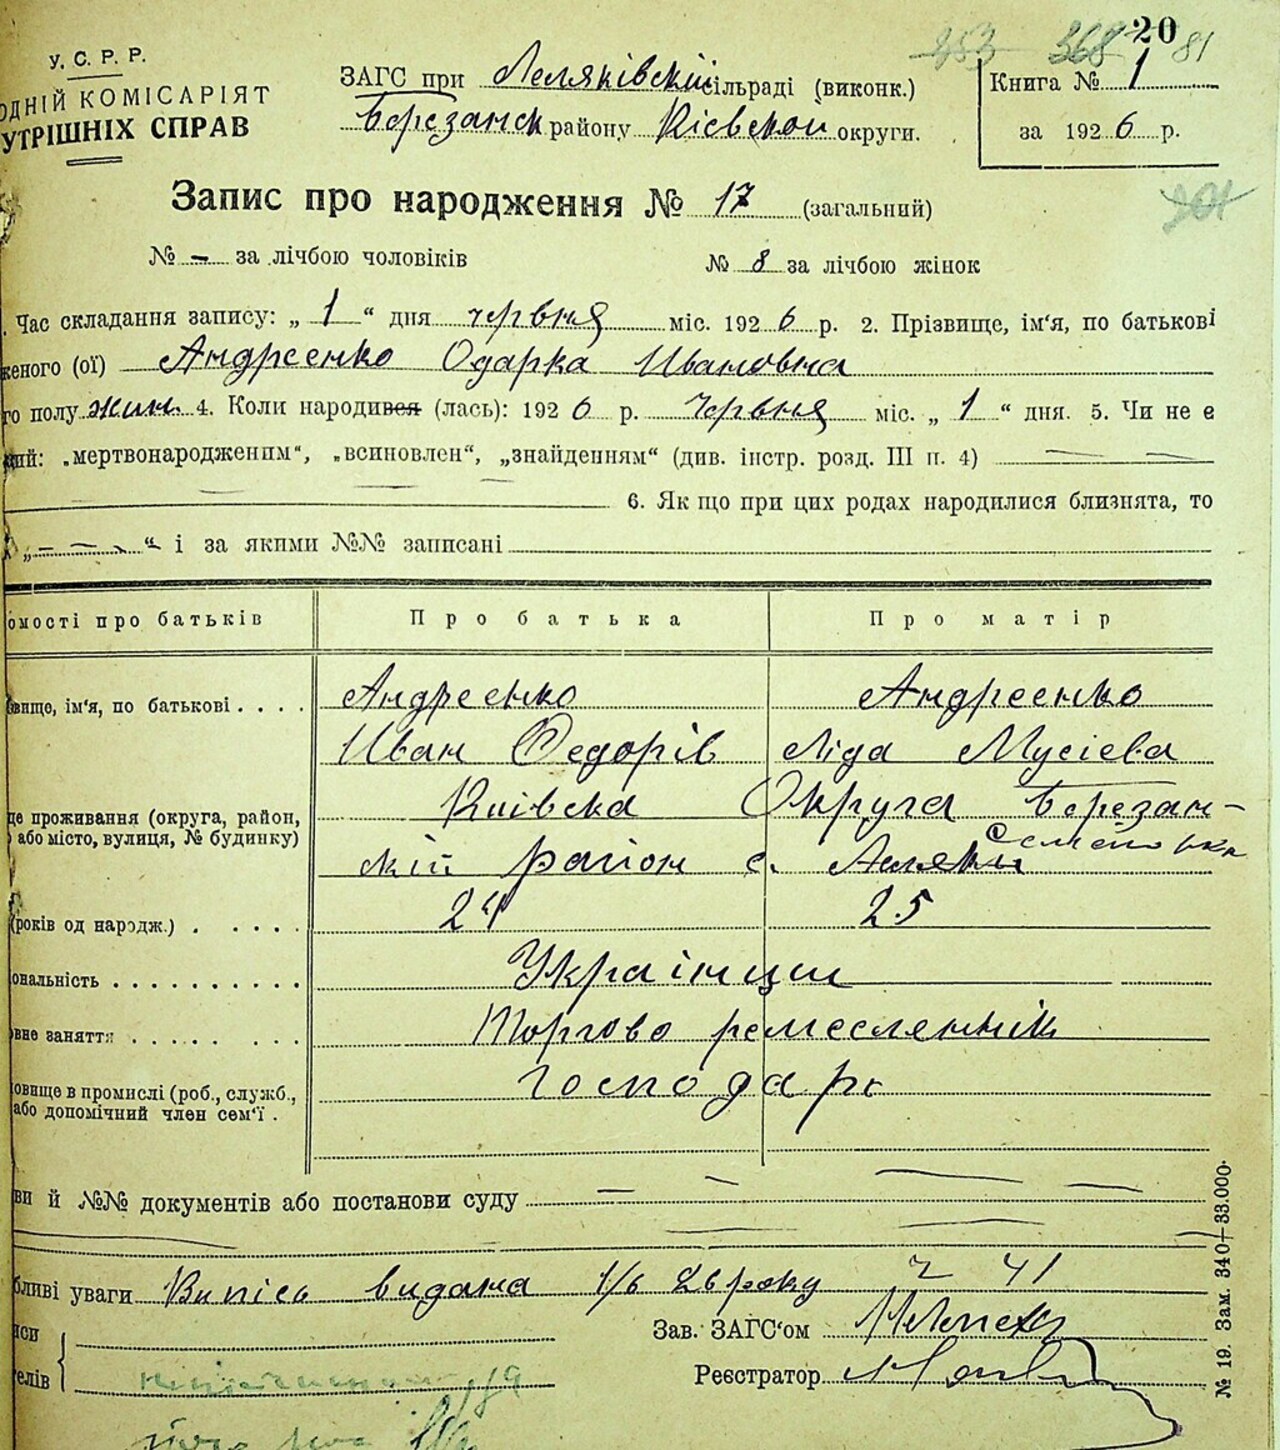 20
253 368 81
У. С. Р. Р.
ОДНІЙ КОМІСАРІЯТ
УТРІШНІХ СПРАВ
ЗАГС при Леляківскій сільраді (виконк.)
Березанск району Кієвской округи.
Книга № 1
за 1926 р.
Запис про народження № 17 (загальний)
201
№ - за лічбою чоловіків № 8 за лічбою жінок
. Час складання запису: „ 1 “ дня червня міс. 1926 р. 2. Прізвище, ім'я, по батькові
женого (ої) Андреенко Одарка Ивановна
го полу жин. 4. Коли народився (лась): 1926 р. Червня міс. „ 1 “ дня. 5. Чи не є
ий: „мертвонародженим“, „всиновлен“, „знайденням“ (див. інстр. розд. III п. 4)
6. Як що при цих родах народилися близнята, то
„ “ і за якими №№ записані
омості про батьків Про батька Про матір
вище, ім'я, по батькові . . . . Андреенко Андреенко
Иван Федорів Ліда Мусіева
це проживання (округа, район, Киівска Округа Березан-
або місто, вулиця, № будинку)
скій район с. Леляки
(років од народж.) . . . . . 24 25
ональність . . . . . . . . . . Українци
вне заняття . . . . . . . . Торгово ремесленнік
овище в промислі (роб., служб., господарь
або допомічний член сем'ї .
ви й №№ документів або постанови суду
бливі уваги Випісь видана 1/6 26 року Ч 41
Зав. ЗАГС'ом
иси
елів
Реєстратор
№ 19. Зам. 340—33.000.